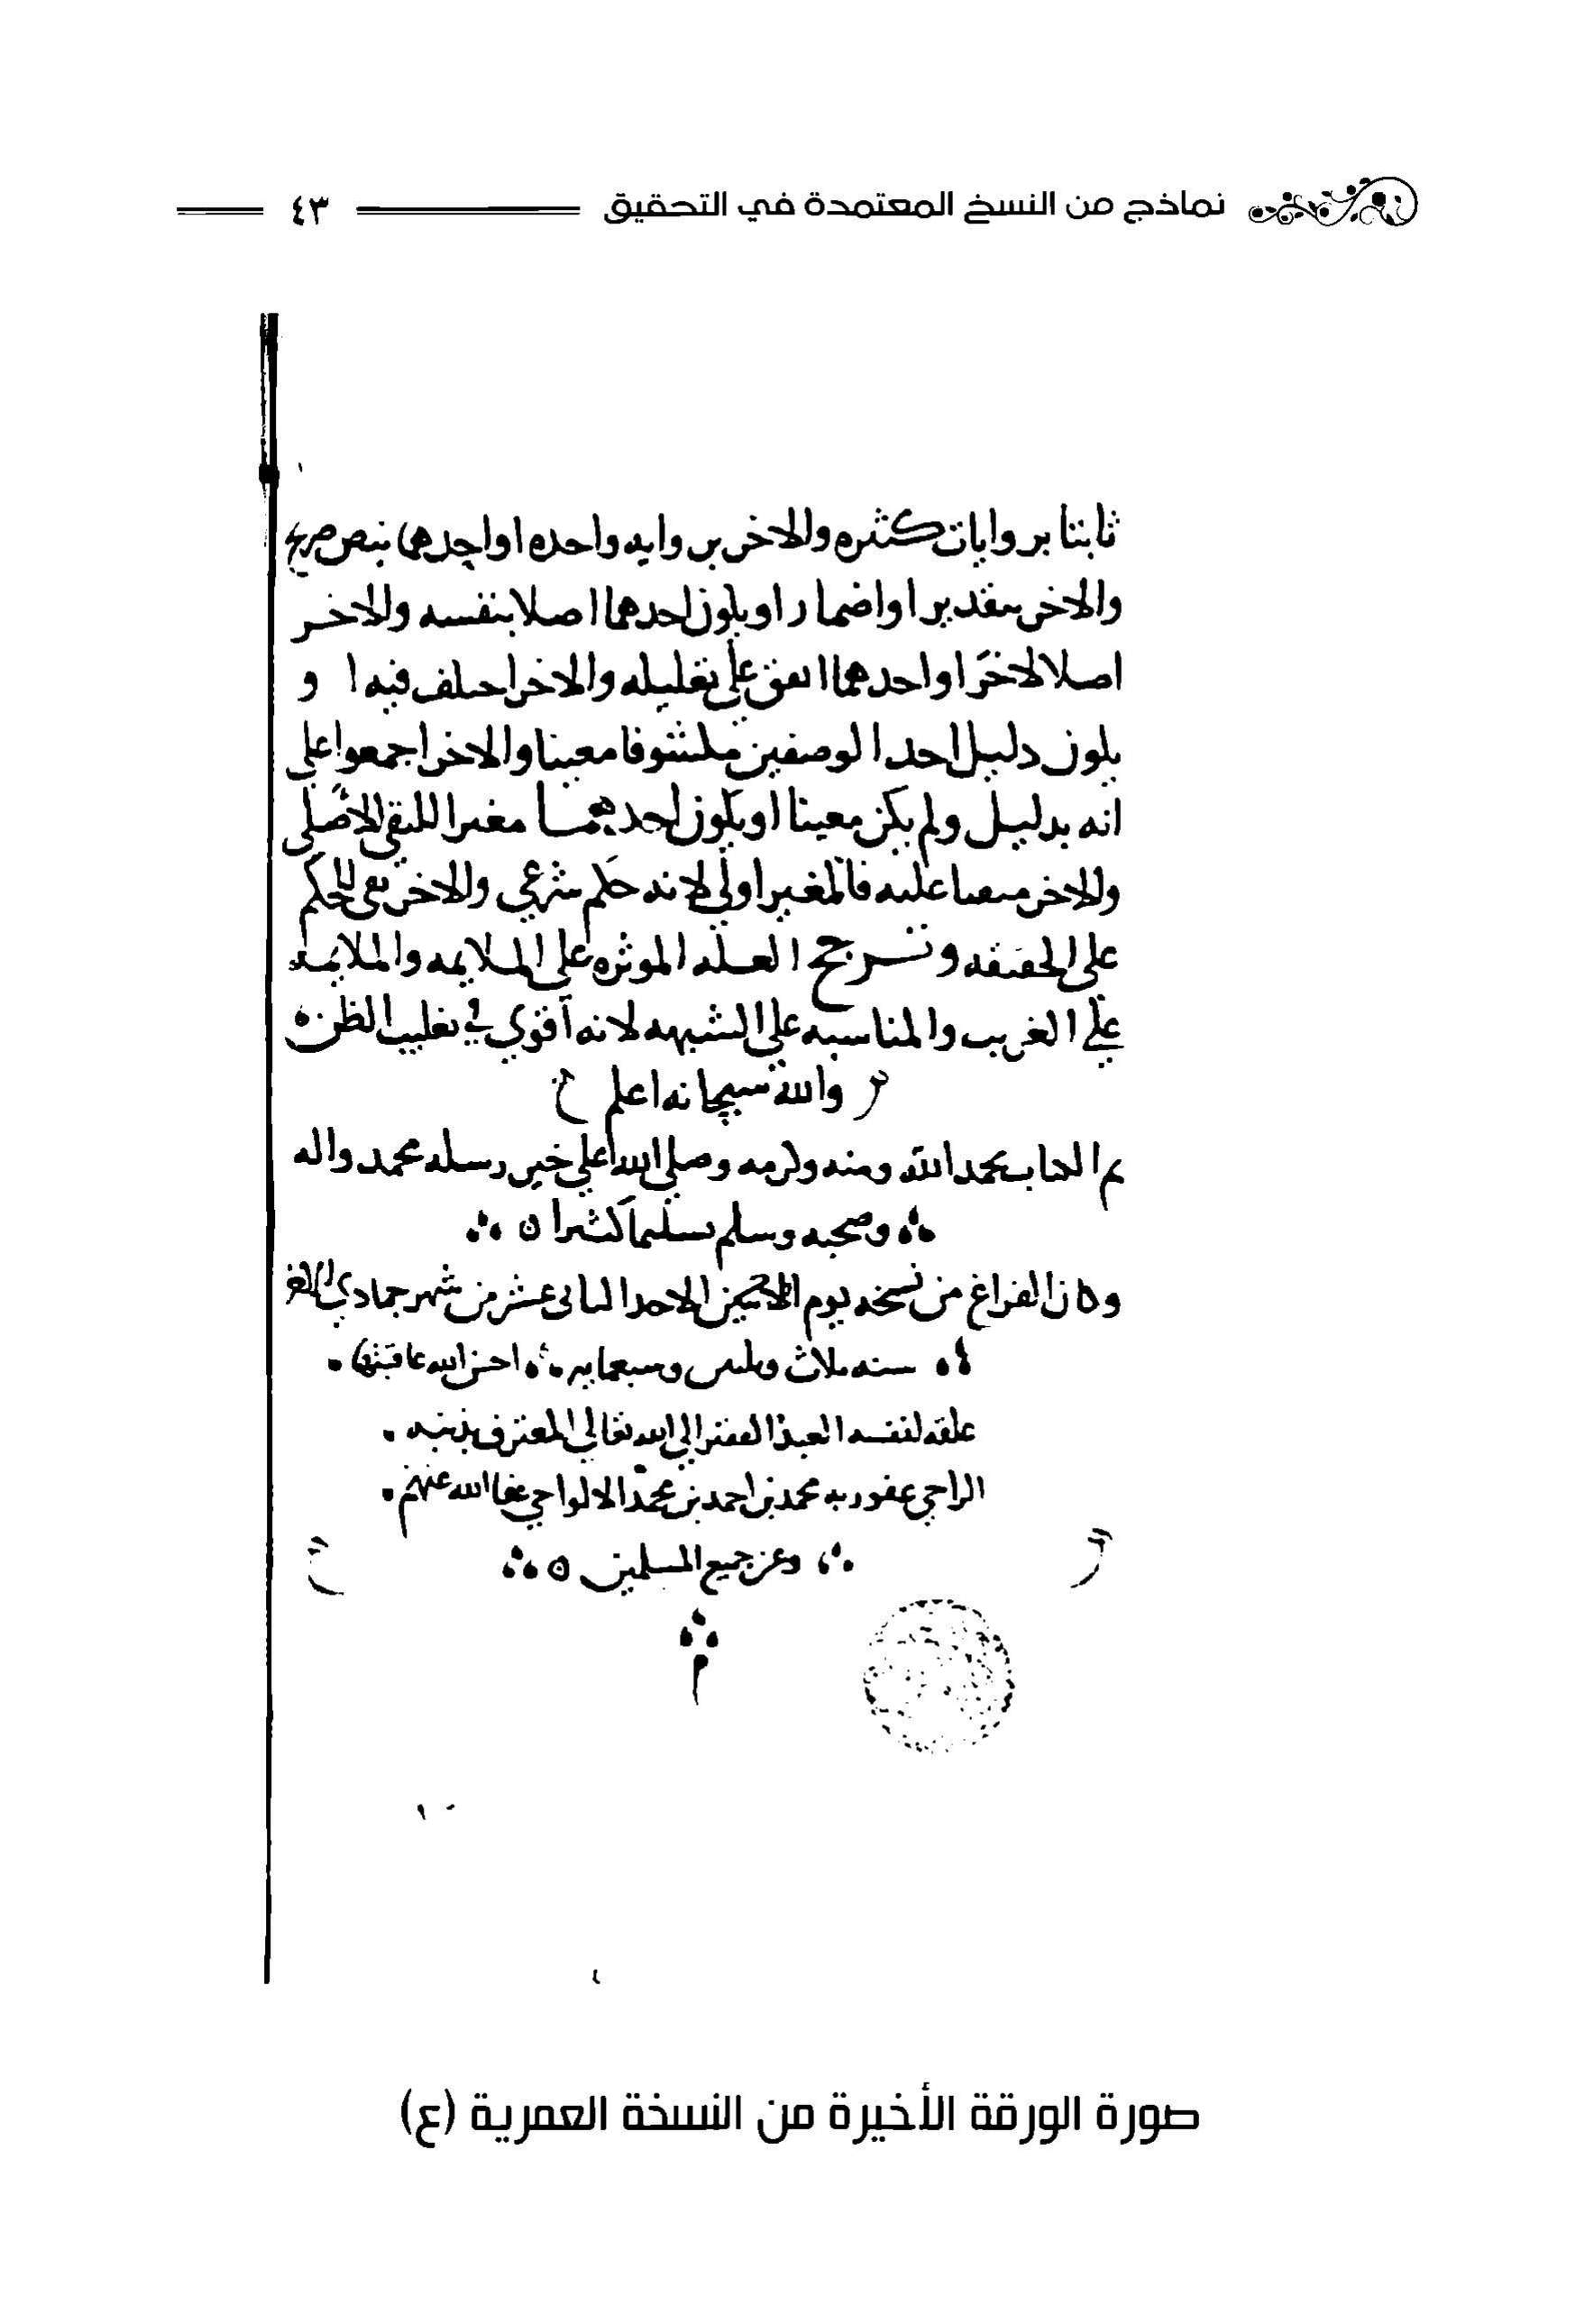 نماذج من النسخ المعتمدة في التحقيق ٤٣
ثابتا بروايات كثيره والاخر بروايه واحده او احدهما بنص صريح
والاخر بتقدير او اضمار او يكون احدهما اصلا بنفسه والاخر
اصلا لاخر او احدهما اتفق على تعليله والاخر اختلف فيه او
يكون دليل احد الوصفين مكشوفا معينا والاخر اجمعوا على
انه بدليل ولم يكن معينا او يكون احدهما مغيرا للنفي الاصلي
والاخر مبقيا عليه فالمغير اولى لانه حكم شرعي والاخر نفي للحكم
على الحقيقه وترجح العله الموثره على الملايمه والملايمه
على الغريب والمناسبه على الشبهيه لانه اقوي في تغليب الظن
والله سبحانه اعلم
تم الكتاب بحمد الله ومنه وكرمه وصلى الله على خير رسله محمد واله
وصحبه وسلم تسليما كثيرا
وكان الفراغ من نسخه يوم الاحد الثاني عشر من شهر جمادي
سنه ثلاث وثلثين وسبعمايه احسن الله عاقبتها
علقه لنفسه العبد الفقير الى الله تعالى المعترف بذنبه
الراجي عفو ربه محمد بن احمد بن محمد الالواحي عفا الله عنهم
وعن جميع المسلمين
صورة الورقة الأخيرة من النسخة العمرية (ع)